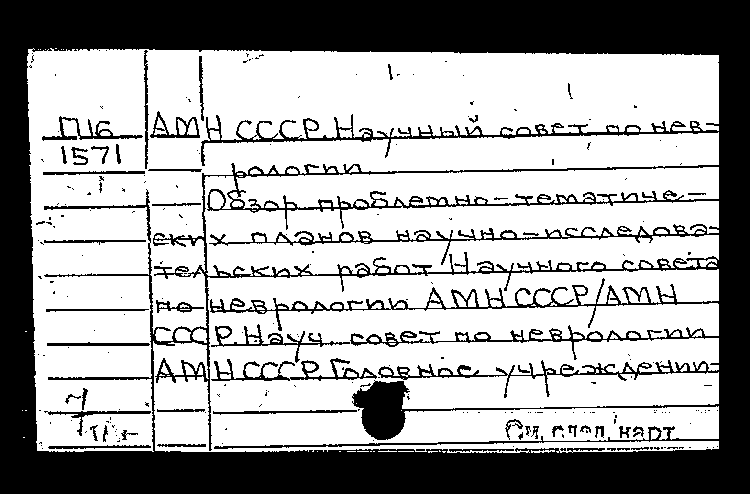 П16 АМН СССР. Научный совет по нев-
1571
рологии.
Обзор проблемно-тематиче-
ских планов научно-исследова-
тельских работ Научного совета
по неврологии АМН СССР/АМН
СССР. Науч. совет по неврологии
АМН СССР. Головное учреждении-
См. след. карт.